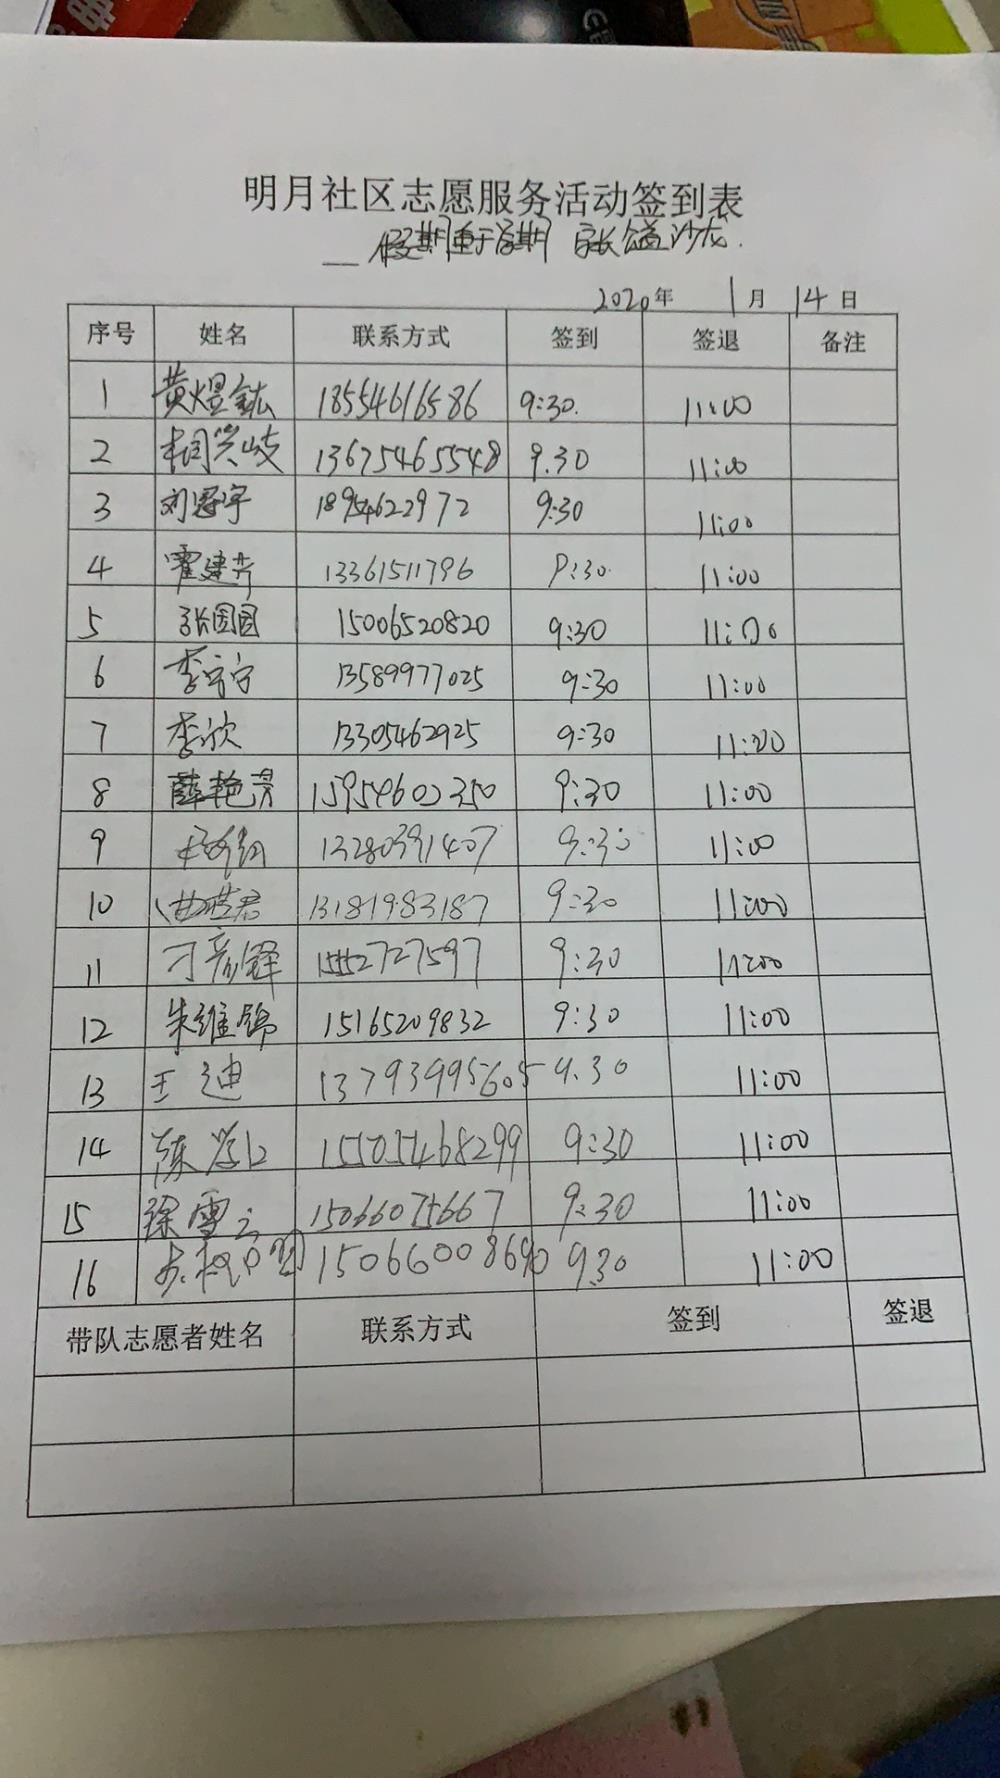 明月社区志愿服务活动签到表
假期重于学期 家长公益沙龙.
2020年 1月 14日
序号 姓名 联系方式 签到 签退 备注
1 黄煜鈜 18554616586 9:30. 11:00
2 13675465548 9.30 11:00
3 刘冠宇 18954622972 9:30 11:00
4 霍建芳 13361511796 9:30. 11:00
5 张圆圆 15006520820 9:30 11:00
6 李宁宁 13589977025 9:30 11:00
7 李欣 13305462925 9:30 11:00
8 薛艳芳 15954602350 9:30 11:00
9 13280391407 9:30 11:00
10 13181983187 9:30 11:00
11 刁彦锋 15552727597 9:30 11:00
12 朱维锦 15165209832 9:30 11:00
13 王迪 13793995605 9.30 11:00
14 陈 15505468299 9:30 11:00
15 徐雪云 15066075667 9:30 11:00
16 15066008690 9.30 11:00
带队志愿者姓名 联系方式 签到 签退